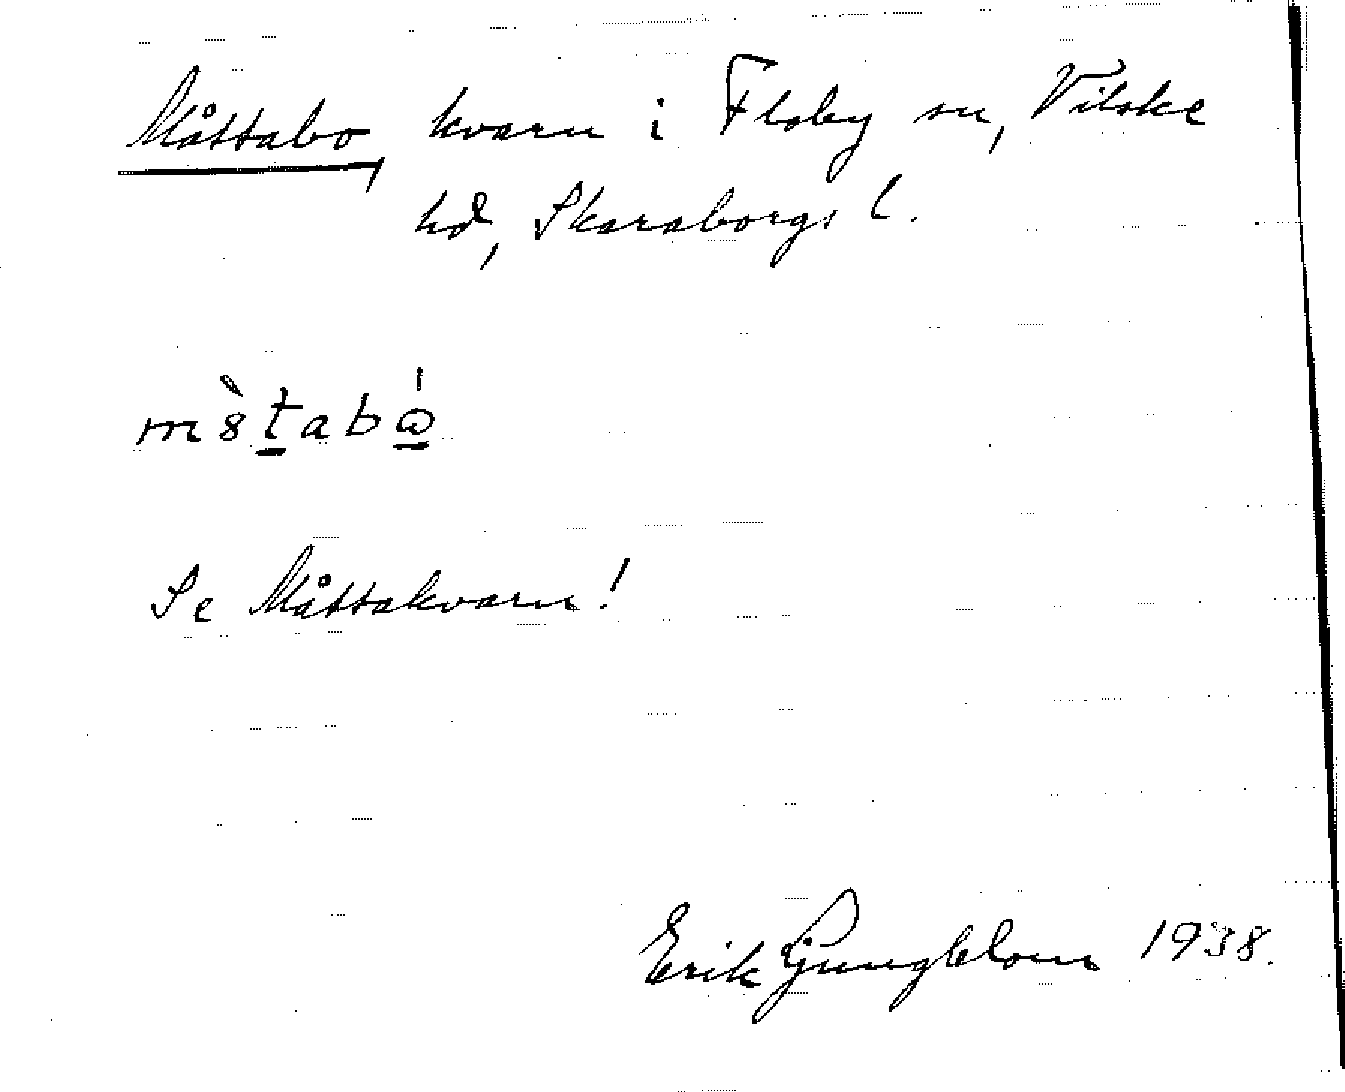 Måttabo, kvarn i Floby sn, Vilske
hd, Skaraborgs l.
m8̀tabώ̲
Se Måttakvarn!
Erik Ljungblom 1938.